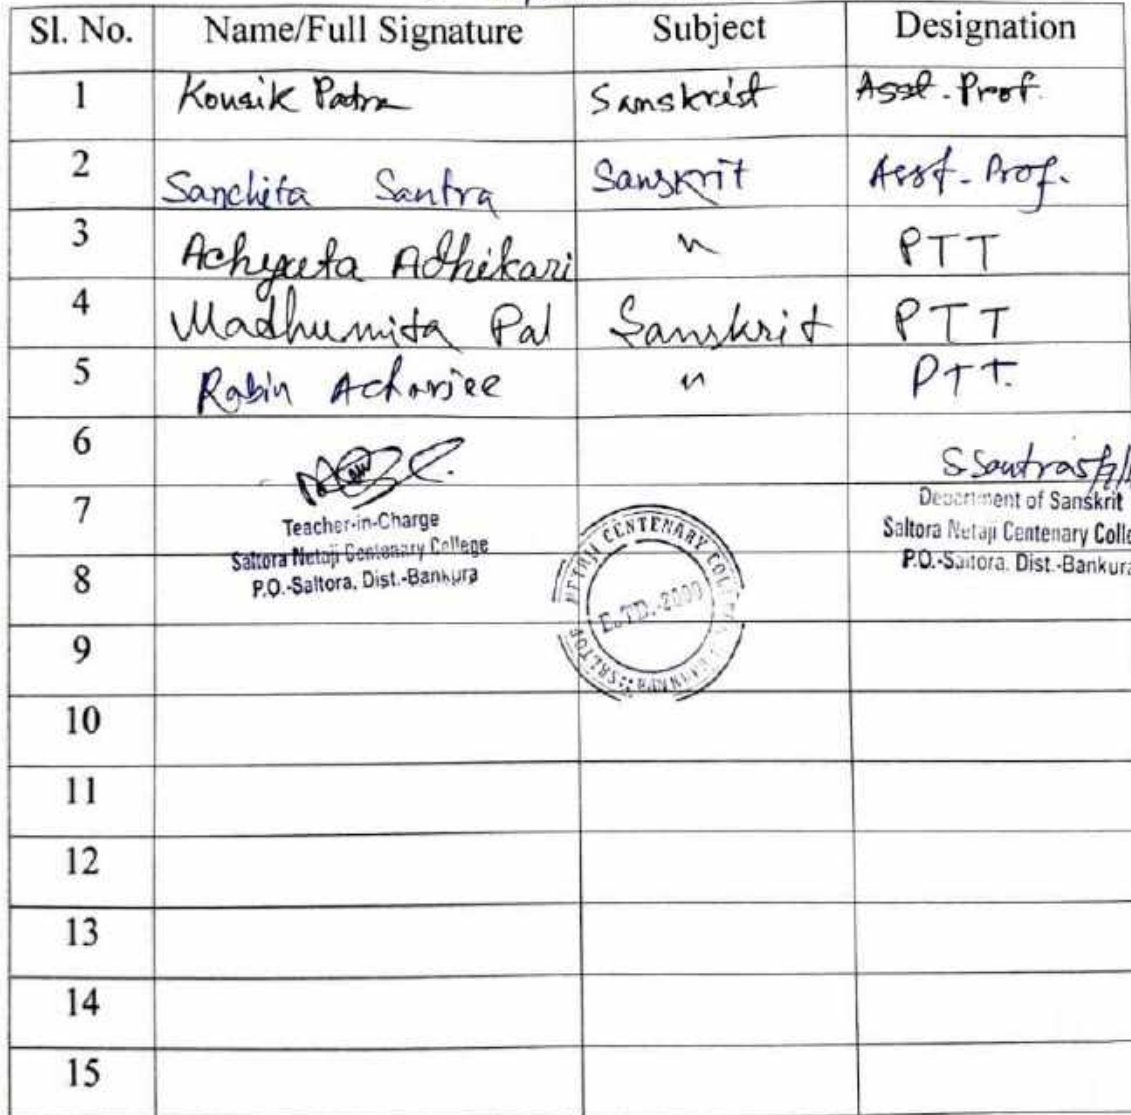 Sl. No. Name/Full Signature Subject Designation
1 Kousik Patra Sanskrit Asst. Prof.
2 Sanchita Santra Sanskrit Asst. Prof.
3 Achyuta Adhikari " PTT
4 Madhumita Pal Sanskrit PTT
5 Rabin Acharjee " PTT.
6
S Santra
7
Teacher-in-Charge
Saltora Netaji Centenary College
P.O.-Saltora, Dist.-Bankura
Department of Sanskrit
Saltora Netaji Centenary Colle
P.O.-Saltora, Dist.-Bankura
8
NETAJI CENTENARY COLL
ESTD.-2000
9
10
11
12
13
14
15